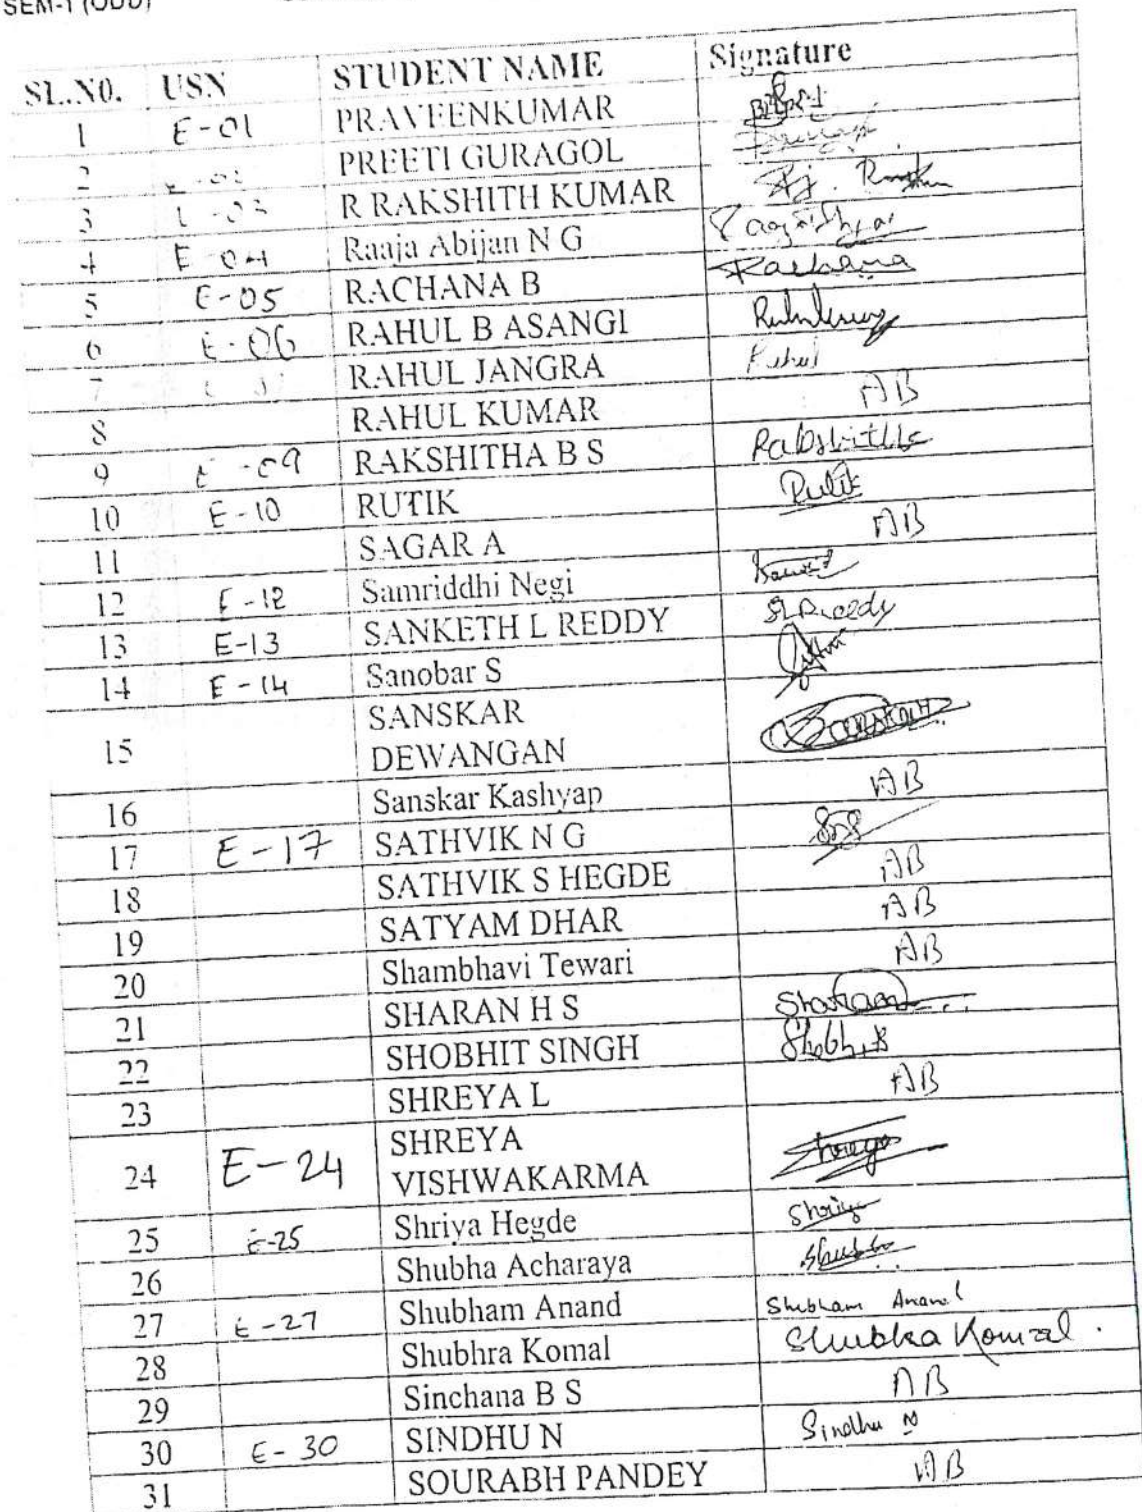 SEM-1 (ODD)
SL.NO. USN STUDENT NAME Signature
1 E-01 PRAVEENKUMAR
2 PREETI GURAGOL
3 R RAKSHITH KUMAR
4 E-04 Raaja Abijan N G
5 E-05 RACHANA B Rachana
6 E-06 RAHUL B ASANGI
7 RAHUL JANGRA Rahul
8 RAHUL KUMAR AB
9 E-09 RAKSHITHA B S Rakshitha
10 E-10 RUTIK Rutik
11 SAGAR A AB
12 E-12 Samriddhi Negi
13 E-13 SANKETH L REDDY
14 E-14 Sanobar S
15 SANSKAR
DEWANGAN Sanskar
16 Sanskar Kashyap AB
17 E-17 SATHVIK N G
18 SATHVIK S HEGDE AB
19 SATYAM DHAR AB
20 Shambhavi Tewari AB
21 SHARAN H S Sharan
22 SHOBHIT SINGH Shobhit
23 SHREYA L AB
24 E-24 SHREYA
VISHWAKARMA Shreya
25 E-25 Shriya Hegde Shriya
26 Shubha Acharaya Shubha
27 E-27 Shubham Anand Shubham Anand
28 Shubhra Komal Shubhra Komal.
29 Sinchana B S AB
30 E-30 SINDHU N Sindhu N
31 SOURABH PANDEY AB